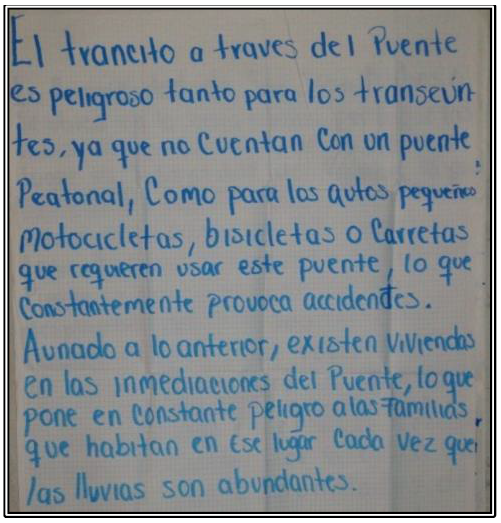 El trancito a traves del Puente
es peligroso tanto para los transeún
tes, ya que no Cuentan Con un puente
Peatonal, Como para los autos pequeños
motocicletas, bisicletas o Carretas
que requieren usar este puente, lo que
Constantemente provoca accidentes.
Aunado a lo anterior, existen viviendas
en las inmediaciones del Puente, lo que
pone en constante peligro a las familias
que habitan en Ese lugar Cada vez que
las lluvias son abundantes.